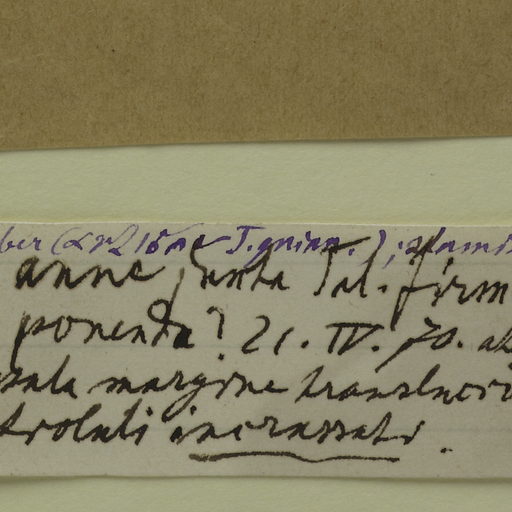 ber T. guian.); stami
anne, juxta Tal. firm
ponenda? 21. IV. 70. al
margine translucri
trolati incrassati.